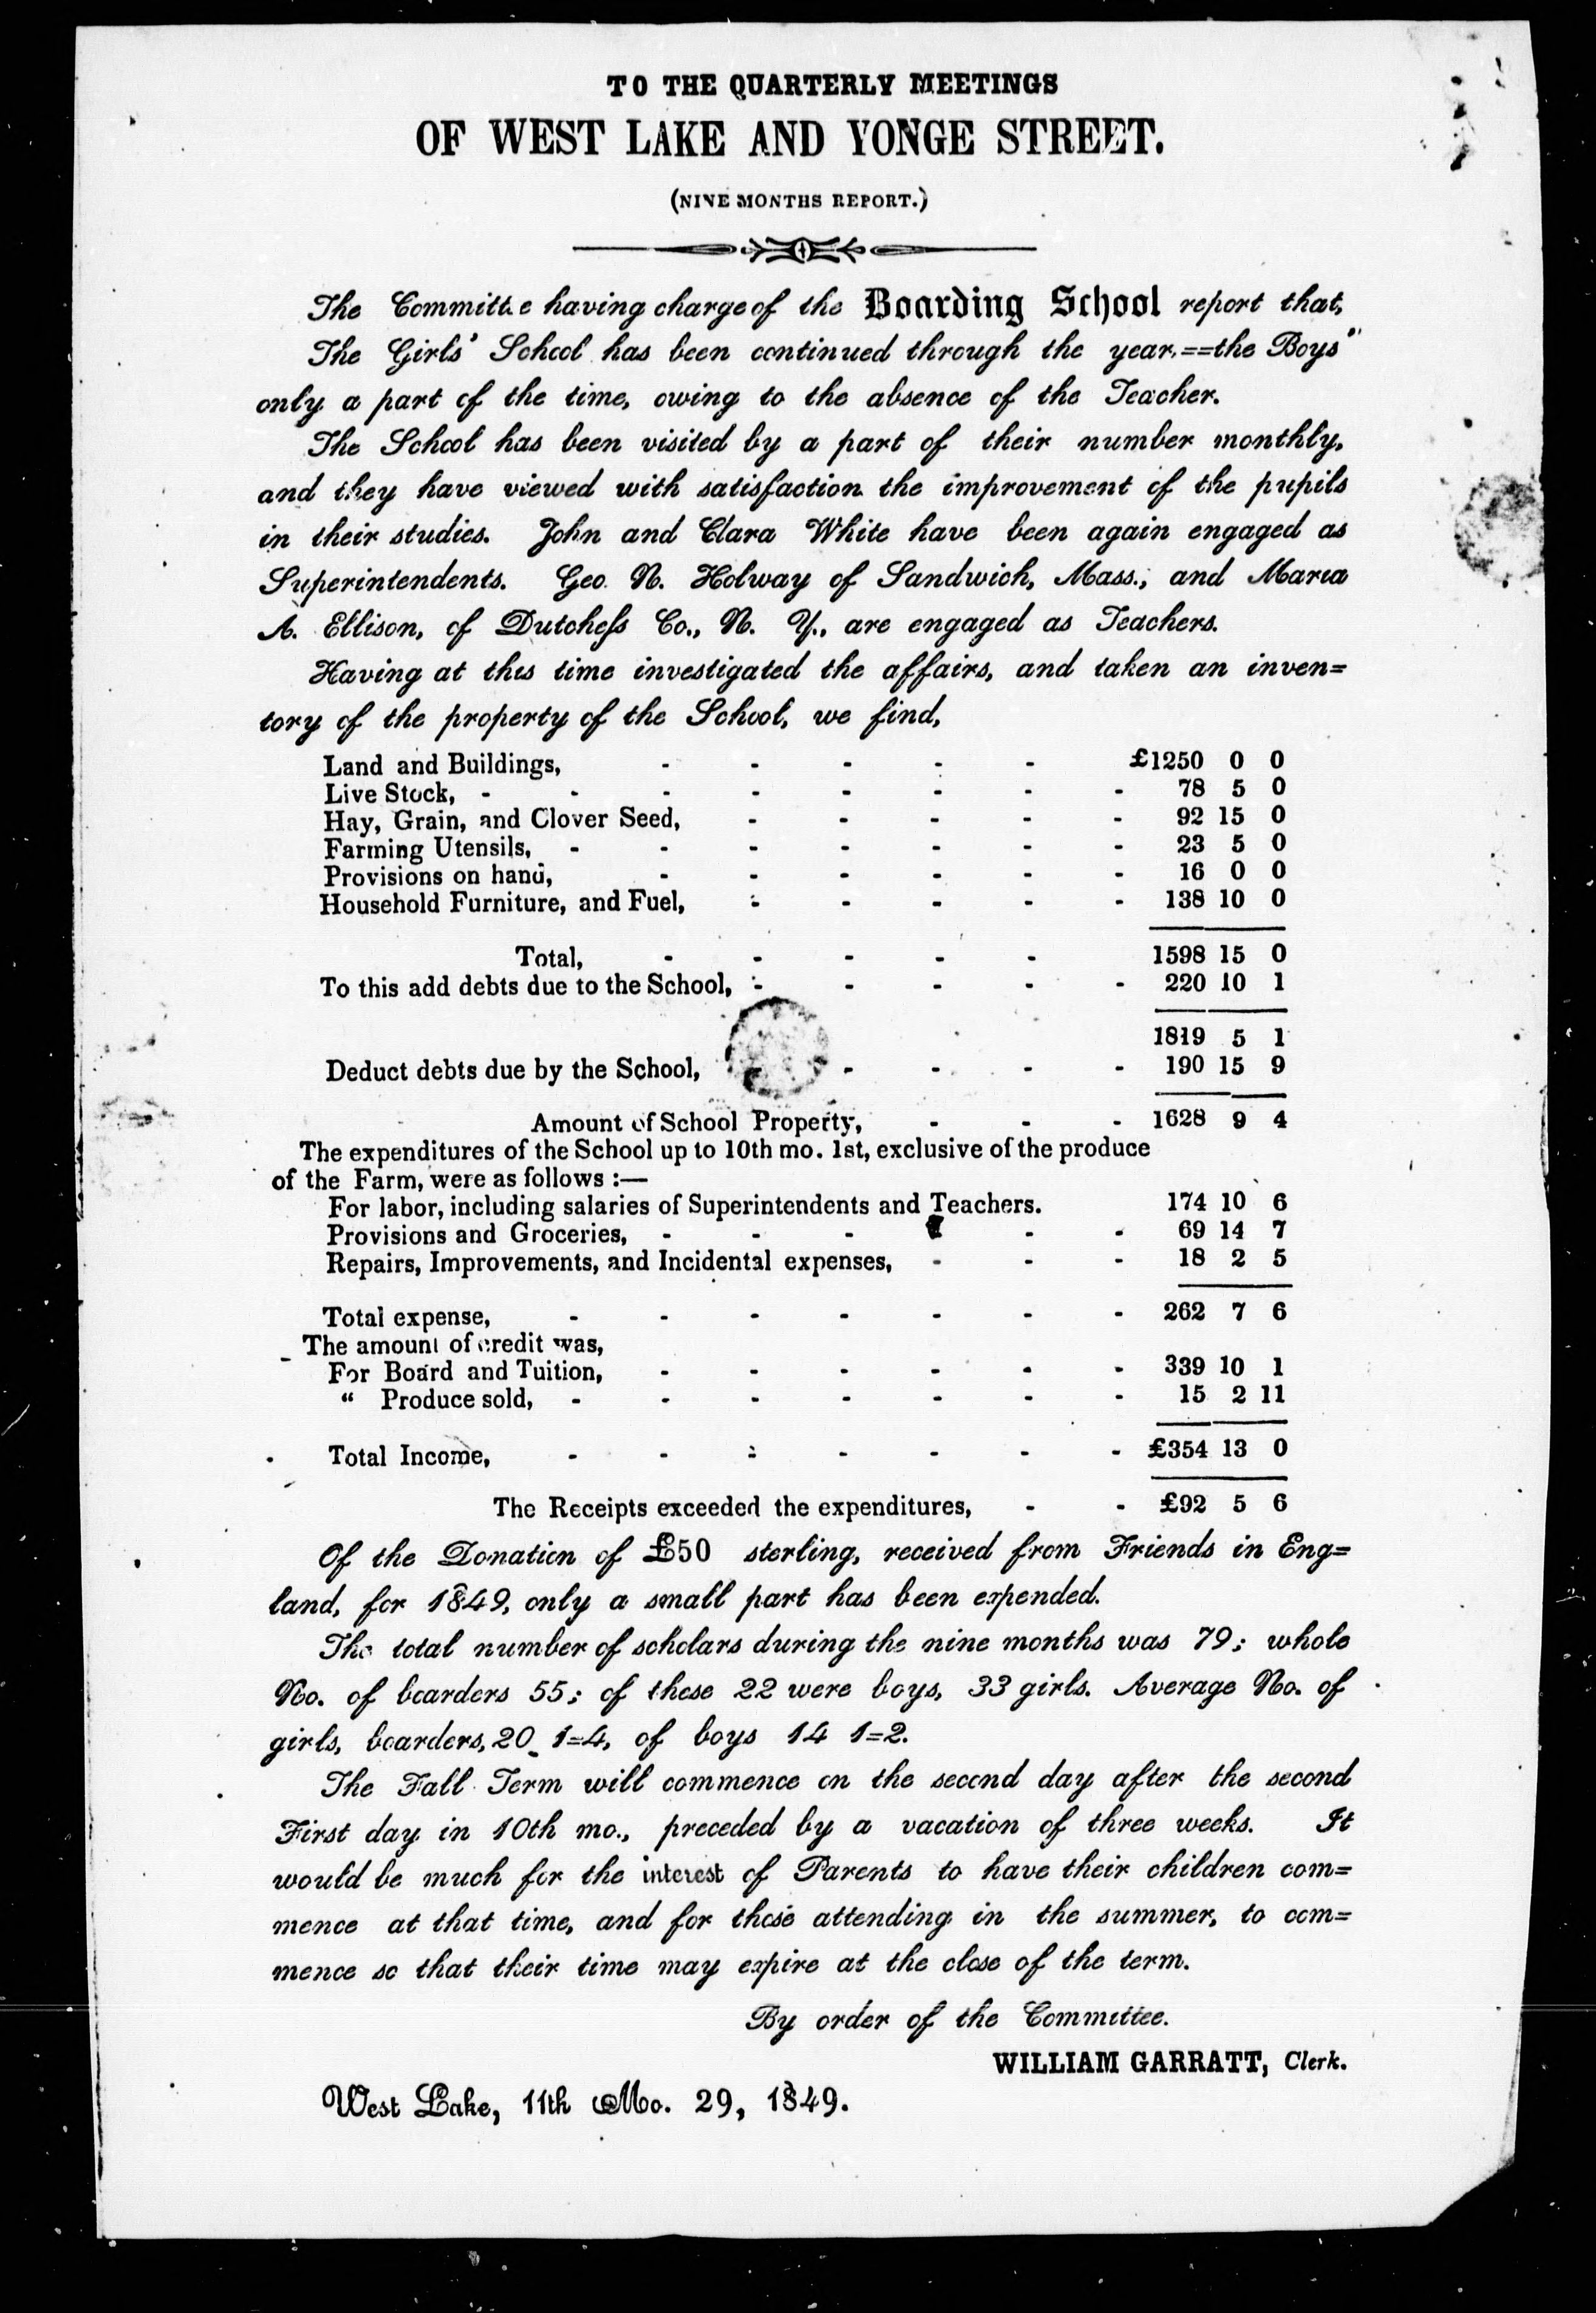 TO THE QUARTERLY MEETINGS
OF WEST LAKE AND YONGE STREET.
(NINE MONTHS REPORT.)
The Committee having charge of the Boarding School report that,
The Girls' School has been continued through the year,==the Boys'
only a part of the time, owing to the absence of the Teacher.
The School has been visited by a part of their number monthly,
and they have viewed with satisfaction the improvement of the pupils
in their studies. John and Clara White have been again engaged as
Superintendents. Geo. N. Holway of Sandwich, Mass.; and Maria
A. Ellison, of Dutchess Co., N. Y., are engaged as Teachers.
Having at this time investigated the affairs, and taken an inven=
tory of the property of the School, we find,
Land and Buildings, - - - - - £1250 0 0
Live Stock, - - - - - - - - 78 5 0
Hay, Grain, and Clover Seed, - - - - - 92 15 0
Farming Utensils, - - - - - - - 23 5 0
Provisions on hand, - - - - - - 16 0 0
Household Furniture, and Fuel, - - - - - 138 10 0
Total, - - - - - 1598 15 0
To this add debts due to the School, - - - - - 220 10 1
1819 5 1
Deduct debts due by the School, - - - - 190 15 9
Amount of School Property, - - - 1628 9 4
The expenditures of the School up to 10th mo. 1st, exclusive of the produce
of the Farm, were as follows :—
For labor, including salaries of Superintendents and Teachers. 174 10 6
Provisions and Groceries, - - - - - - 69 14 7
Repairs, Improvements, and Incidental expenses, - - - 18 2 5
Total expense, - - - - - - - 262 7 6
The amount of credit was,
For Board and Tuition, - - - - - - 339 10 1
“ Produce sold, - - - - - - - 15 2 11
Total Income, - - - - - - - £354 13 0
The Receipts exceeded the expenditures, - - £92 5 6
Of the Donation of £50 sterling, received from Friends in Eng=
land, for 1849, only a small part has been expended.
The total number of scholars during the nine months was 79; whole
No. of boarders 55; of these 22 were boys, 33 girls. Average No. of
girls, boarders, 20 1=4, of boys 14 1=2.
The Fall Term will commence on the second day after the second
First day in 10th mo., preceded by a vacation of three weeks. It
would be much for the interest of Parents to have their children com=
mence at that time, and for those attending in the summer, to com=
mence so that their time may expire at the close of the term.
By order of the Committee.
WILLIAM GARRATT, Clerk.
West Lake, 11th Mo. 29, 1849.